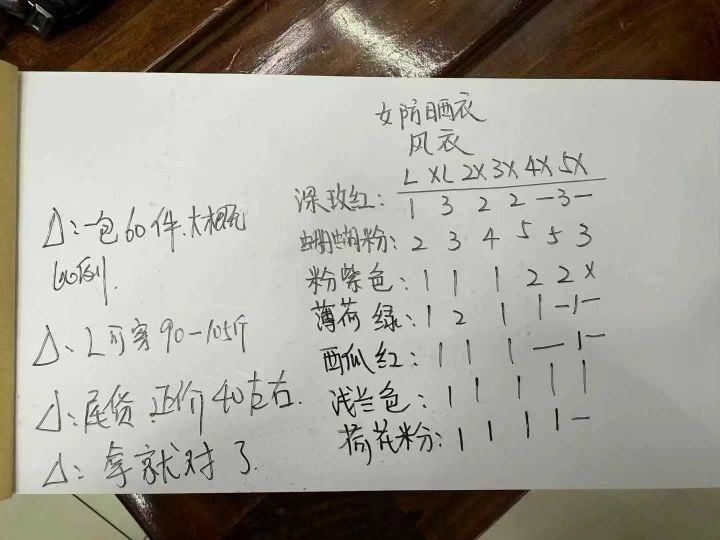 女防晒衣
风衣
L XL 2X 3X 4X 5X
深玫红: 1 3 2 2 一 3 一
蝴蝴粉: 2 3 4 5 5 3
粉紫色: 1 1 1 2 2 X
薄荷绿: 1 2 1 1 一 1 一
西瓜红: 1 1 1 一 1 一
浅兰色: 1 1 1 1 1
荷花粉: 1 1 1 1 一
△: 一包60件.大概
的例.
△、L可穿90-105斤
△: 尾货.正价40左右.
△: 拿就对了.